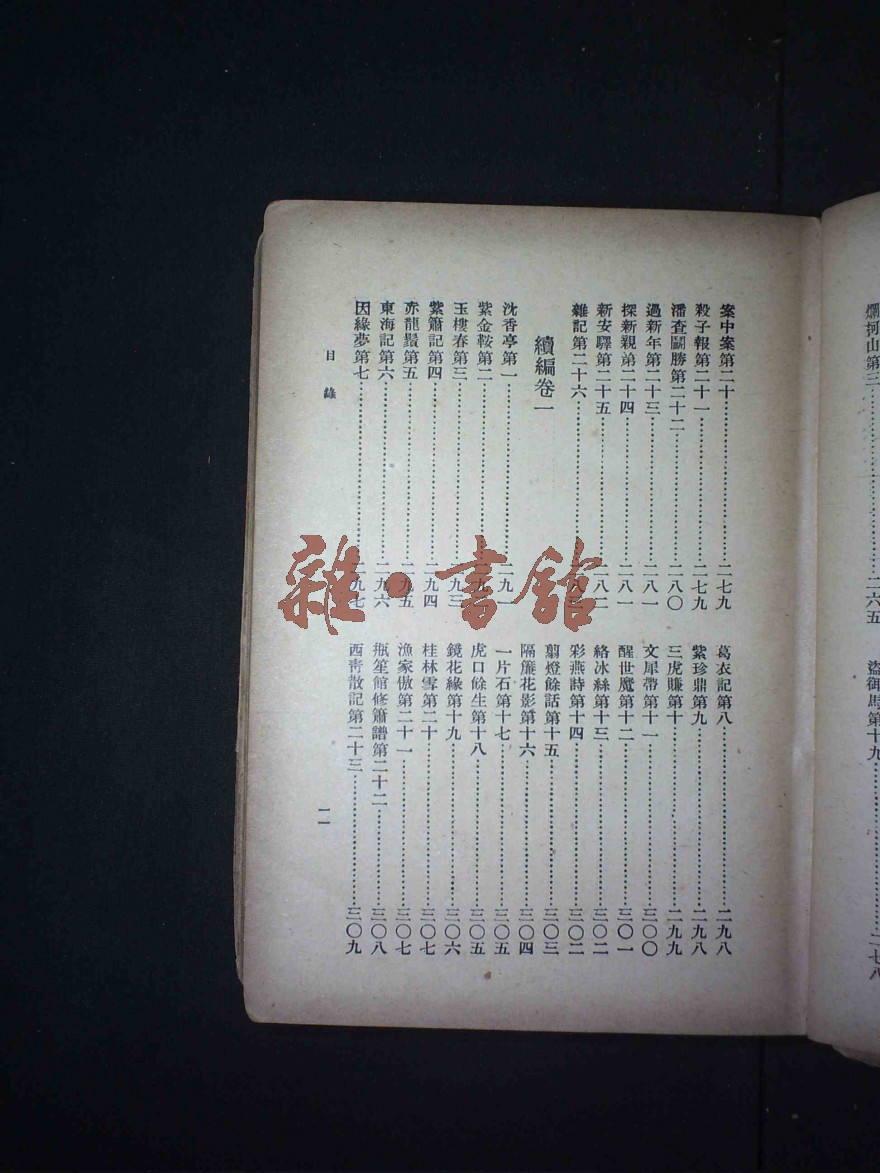 爛柯山第三……………………二六五
盜御馬第十九……………………二七八
案中案第二十……………………二七九
殺子報第二十一……………………二七九
潘查鬭勝第二十二……………………二八〇
過新年第二十三……………………二八一
探新親弟二十四……………………二八一
新安驛第二十五……………………二八二
雜記第二十六……………………二八三
續編卷一
沈香亭第一……………………二九一
紫金鞍第二……………………二九
玉樓春第三……………………二九三
紫簫記第四……………………二九四
赤龍鬚第五……………………二九五
東海記第六……………………二九六
因緣夢第七……………………二九七
葛衣記第八……………………二九八
紫珍鼎第九……………………二九八
三虎賺第十……………………二九九
文犀帶第十一……………………三〇〇
醒世魔第十二……………………三〇一
絡冰絲第十三……………………三〇二
彩燕詩第十四……………………三〇二
翦燈餘話第十五……………………三〇三
隔簾花影第十六……………………三〇四
一片石第十七……………………三〇五
虎口餘生第十八……………………三〇五
鏡花緣第十九……………………三〇六
桂林雪第二十……………………三〇七
漁家傲第二十一……………………三〇七
瓶笙館修簫譜第二十二……………………三〇八
西靑散記第二十三……………………三〇九
目錄
一一
雜·書館